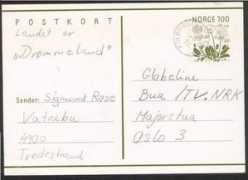 POSTKORT
NORGE 100
Landet er
"Drømmeland"
Globeline
Sender: Sigmund Rose
Bua ITV. NRK
Vatnebu
Majorstua
4900
Oslo 3
Tvedestrand